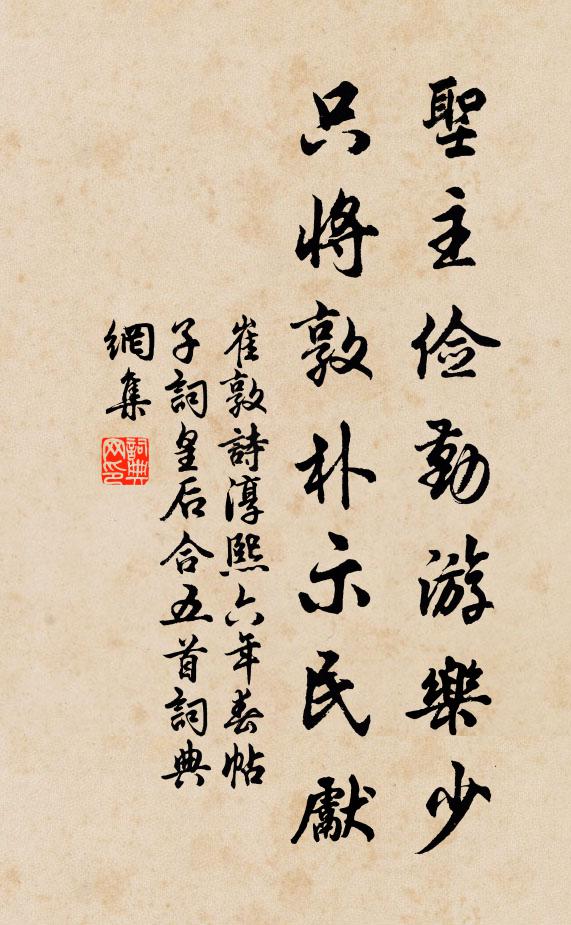 聖主儉勤游樂少
只將敦朴示民獻
崔敦詩淳熙六年春帖
子詞皇后合五首詞典
網集
詞典
网印